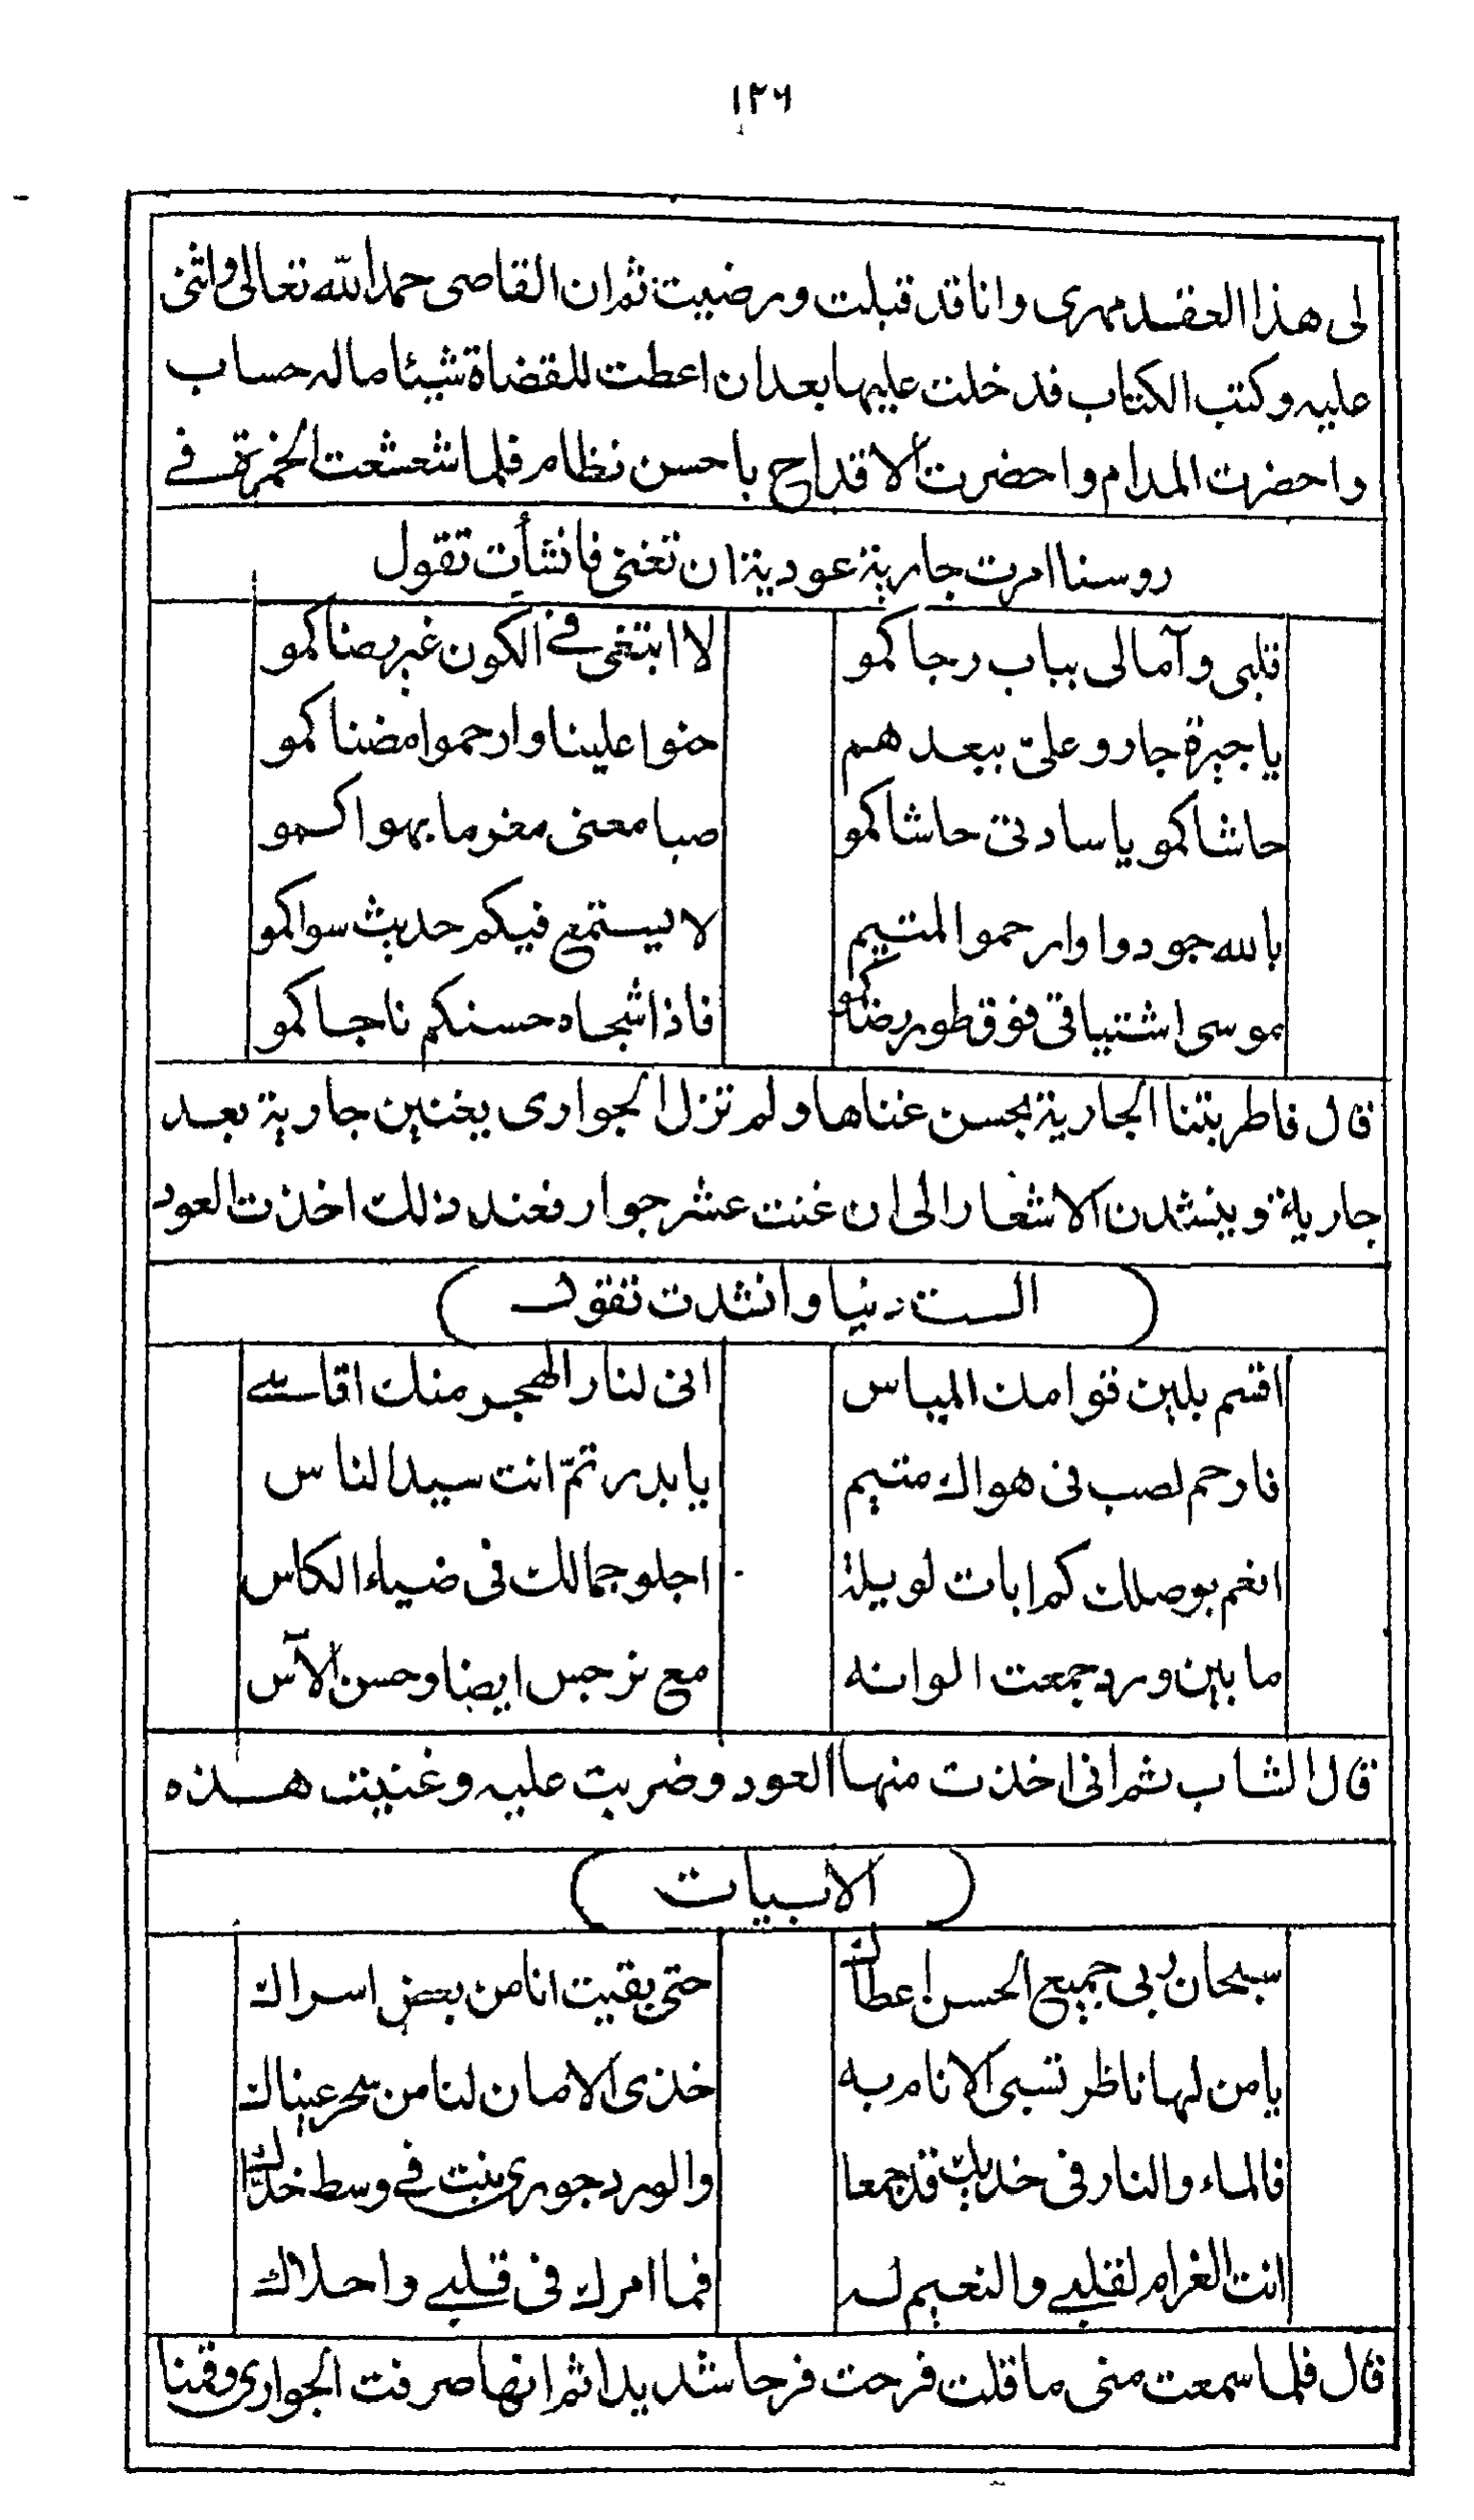 ١٢٦
لى هذا العقد مهرى وانا قد قبلت ورضيت ثم ان القاصى حمد الله تعالى واثنى
عليه وكتب الكتاب فدخلت عليها بعد ان اعطت للقضاة شيئا ماله حساب
واحضرت المدام واحضرت الاقداح باحسن نظام فلما شعشعت الخمرة فى
روسنا امرت جارية عودية ان تغنى فانشأت تقول
قلبى وآمالى بباب رجاكمو لا ابتغى فى الكون غير رضاكمو
يا جيرة جاروعلىّ ببعدهم حنوا علينا وارحموا مضناكمو
حاشاكمو يا سادتى حاشاكمو صبا معنى مغرما بهواكمو
بالله جودوا وارحموا المتيم لا يستمع فيكم حديث سواكمو
موسى اشتياقى فوق طور رضاكمو فاذا شجاه حسنكم ناجاكمو
قال فاطربتنا الجارية بحسن غناها ولم تزل الجوارى يغنين جارية بعد
جارية وينشدن الاشعار الى ان غنت عشر جوار فعند ذلك اخذت العود
الست دنيا وانشدت تقول
اقسم بلين قوامك المياس انى لنار الهجر منك اقاسى
فارحم لصب فى هواك متيم يا بدر تمّ انت سيد الناس
انعم بوصلك كم ابات لويلة اجلو جمالك فى ضياء الكاس
ما بين ورد جمعت الوانه مع نرجس ايضا وحسن الآس
قال الشاب ثم انى اخذت منها العود وضربت عليه وغنيت هذه
الابيات
سبحان ربى جميع الحسن اعطاك حتى بقيت انا من بعض اسراك
يا من لها ناظر تسبى الانام به خذى الامان لنا من سحر عيناك
فالماء والنار فى خديك قد جمعا والورد جورى ينبت فى وسط خداك
انت الغرام لقلبى والنعيم له فما امرك فى قلبى واحلاك
قال فلما سمعت منى ما قلت فرحت فرحا شديدا ثم انها صرفت الجوارى وقمنا